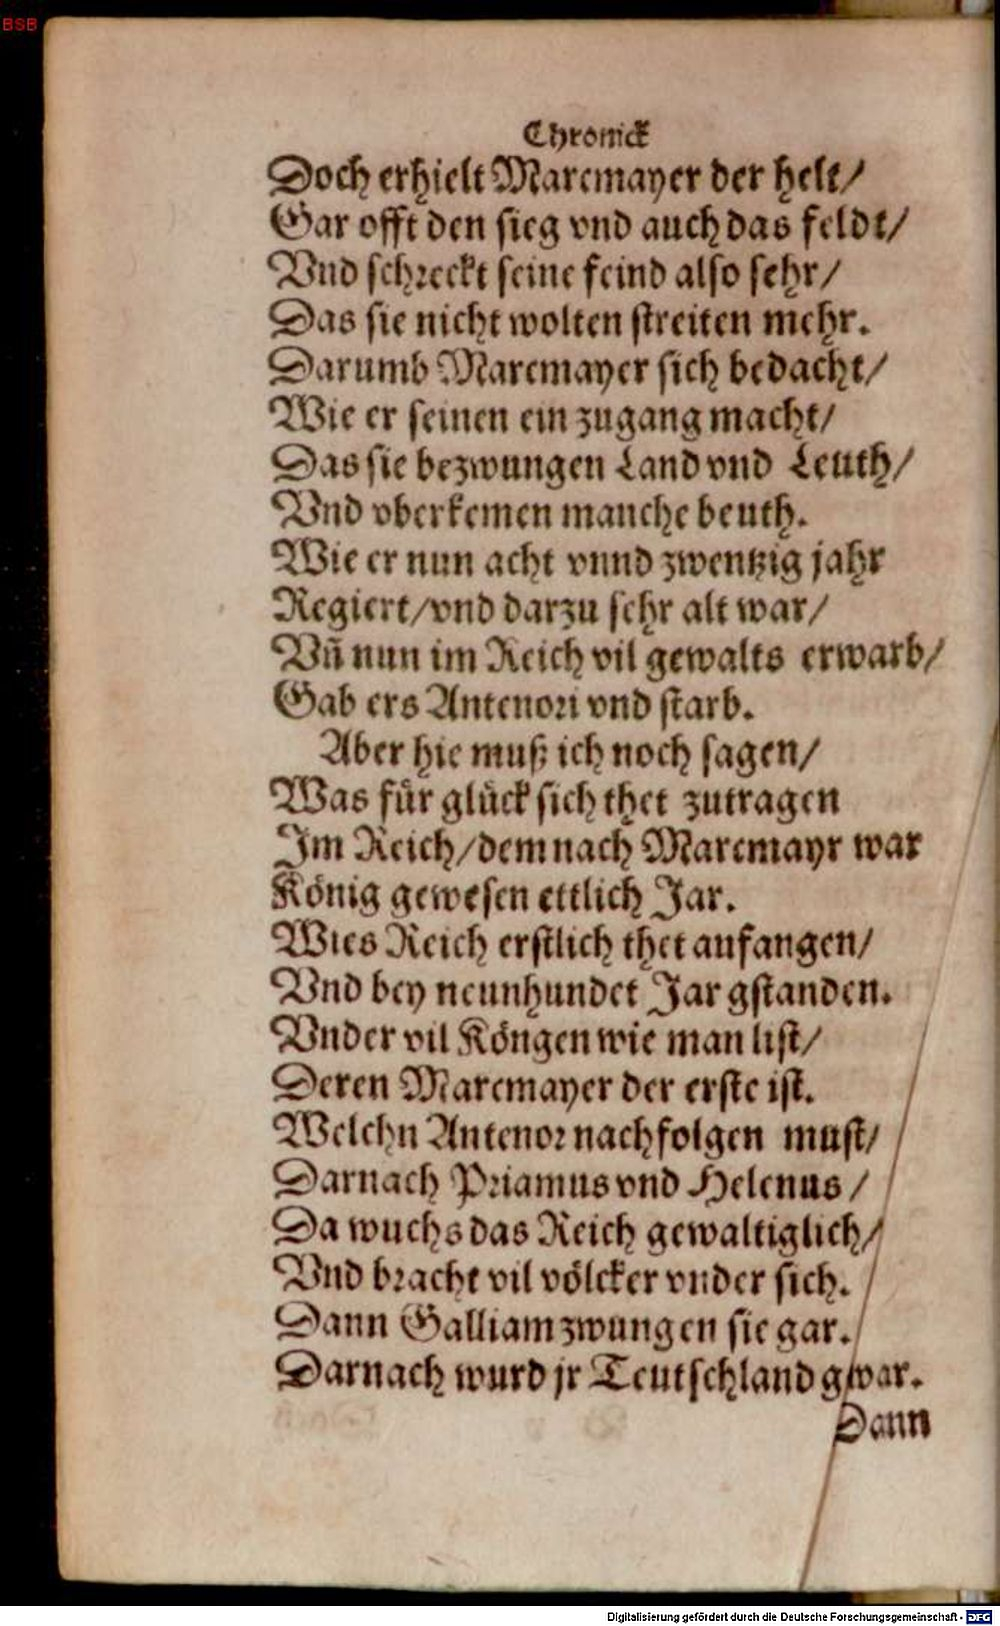 BSB
Chronick
Doch erhielt Marcmayer der helt/
Gar offt den sieg vnd auch das feldt/
Vnd schreckt seine feind also sehr/
Das sie nicht wolten streiten mehr.
Darumb Marcmayer sich bedacht/
Wie er seinen ein zugang macht/
Das sie bezwungen Land vnd Leuth/
Vnd vberkemen manche beuth.
Wie er nun acht vnnd zwentzig jahr
Regiert/vnd darzu sehr alt war/
Vñ nun im Reich vil gewalts erwarb/
Gab ers Antenori vnd starb.
Aber hie muß ich noch sagen/
Was für glück sich thet zutragen
Im Reich/demnach Marcmayr war
König gewesen ettlich Jar.
Wies Reich erstlich thet anfangen/
Vnd bey neunhundet Jar gstanden.
Vnder vil Köngen wie man list/
Deren Marcmayer der erste ist.
Welchn Antenor nachfolgen must/
Darnach Priamus vnd Helenus/
Da wuchs das Reich gewaltiglich/
Vnd bracht vil völcker vnder sich.
Dann Galliam zwungen sie gar.
Darnach wurd jr Teutschland gwar.
Dann
Digitalisierung gefördert durch die Deutsche Forschungsgemeinschaft - DFG